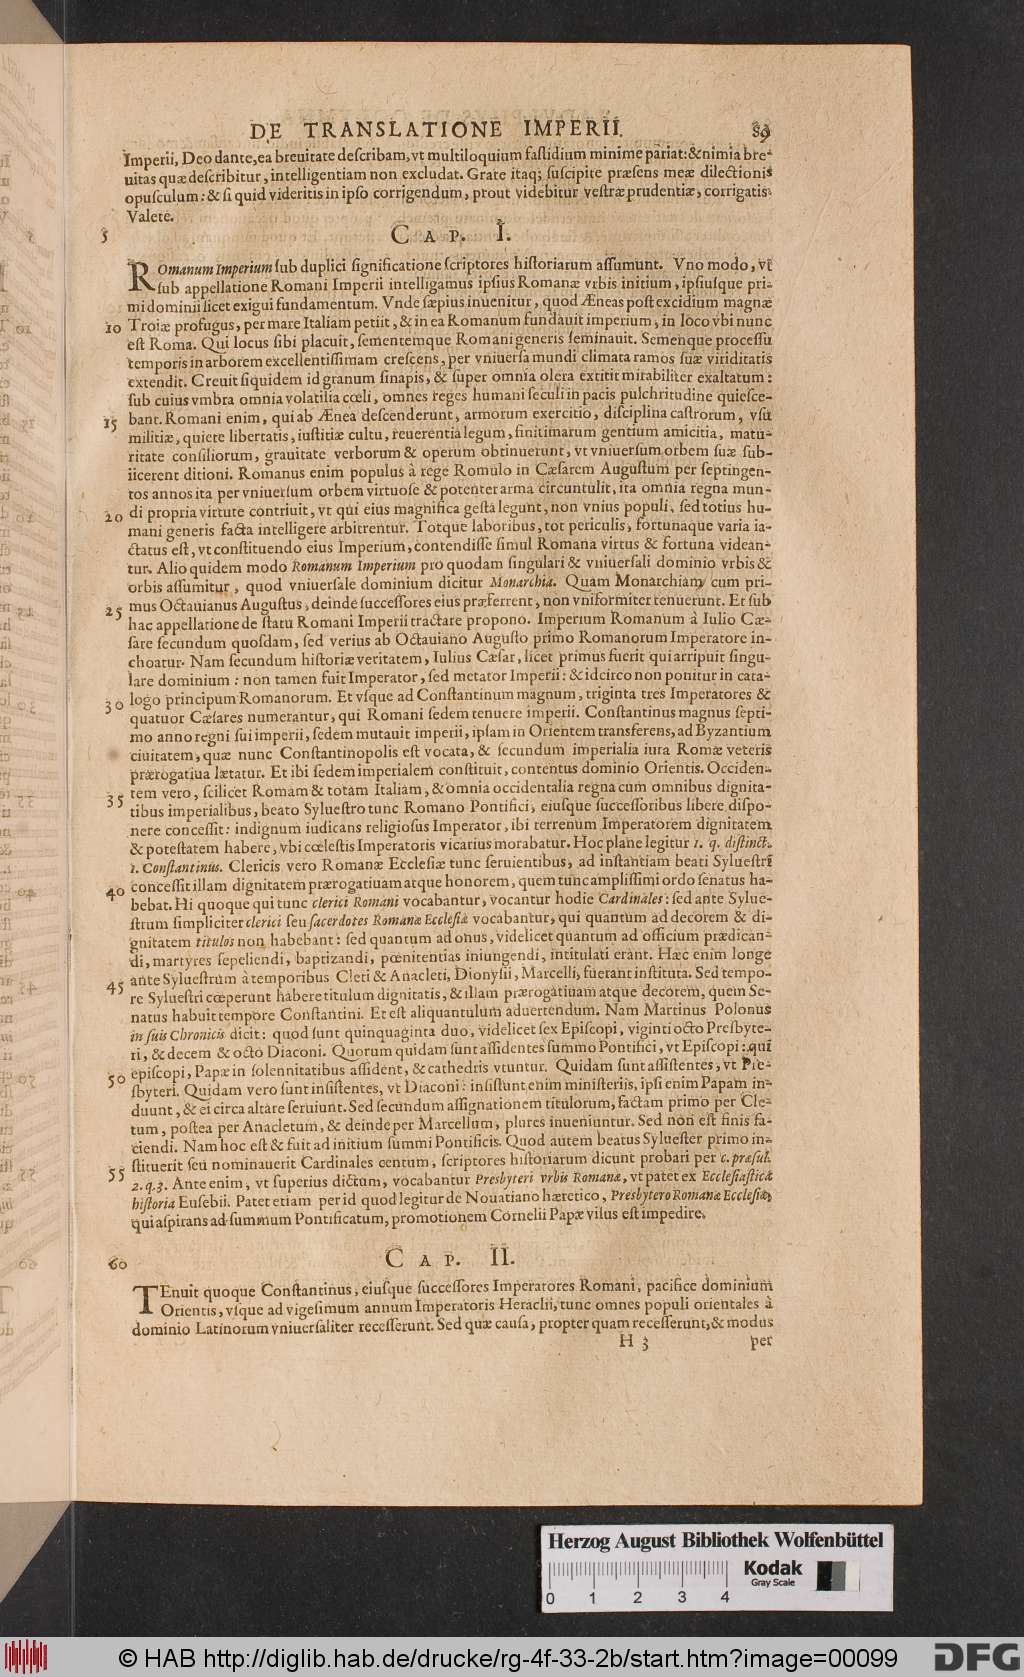 DE TRANSLATIONE IMPERII. 89
Imperii, Deo dante, ea breuitate deſcribam, vt multiloquium faſtidium minime pariat: & nimia bre-
uitas quæ deſcribitur, intelligentiam non excludat. Grate itaq; ſuſcipite præſens meæ dilectionis
opuſculum: & ſi quid videritis in ipſo corrigendum, prout videbitur veſtræ prudentiæ, corrigatis.
Valete.
5 CAP. I.
ROmanum Imperium ſub duplici ſignificatione ſcriptores hiſtoriarum aſſumunt. Vno modo, vt
ſub appellatione Romani Imperii intelligamus ipſius Romanæ vrbis initium, ipſiuſque pri-
mi dominii licet exigui fundamentum. Vnde ſæpius inuenitur, quod Æneas poſt excidium magnæ
10 Troiæ profugus, per mare Italiam petiit, & in ea Romanum fundauit imperium, in loco vbi nunc
eſt Roma. Qui locus ſibi placuit, ſementemque Romani generis ſeminauit. Semenque proceſſu
temporis in arborem excellentiſſimam creſcens, per vniuerſa mundi climata ramos ſuæ viriditatis
extendit. Creuit ſiquidem id granum ſinapis, & ſuper omnia olera extitit mirabiliter exaltatum:
ſub cuius vmbra omnia volatilia cœli, omnes reges humani ſeculi in pacis pulchritudine quieſce-
15 bant. Romani enim, qui ab Ænea deſcenderunt, armorum exercitio, diſciplina caſtrorum, vſu
militiæ, quiete libertatis, iuſtitiæ cultu, reuerentia legum, finitimarum gentium amicitia, matu-
ritate conſiliorum, grauitate verborum & operum obtinuerunt, vt vniuerſum orbem ſuæ ſub-
iicerent ditioni. Romanus enim populus à rege Romulo in Cæſarem Auguſtum per ſeptingen-
tos annos ita per vniuerſum orbem virtuoſe & potenter arma circuntulit, ita omnia regna mun-
20 di propria virtute contriuit, vt qui eius magnifica geſta legunt, non vnius populi, ſed totius hu-
mani generis facta intelligere arbitrentur. Totque laboribus, tot periculis, fortunaque varia ia-
ctatus eſt, vt conſtituendo eius Imperium, contendiſſe ſimul Romana virtus & fortuna videan-
tur. Alio quidem modo Romanum Imperium pro quodam ſingulari & vniuerſali dominio vrbis &
orbis aſſumitur, quod vniuerſale dominium dicitur Monarchia. Quam Monarchiam cum pri-
25 mus Octauianus Auguſtus, deinde ſucceſſores eius præferrent, non vniformiter tenuerunt. Et ſub
hac appellatione de ſtatu Romani Imperii tractare propono. Imperium Romanum à Iulio Cæ-
ſare ſecundum quoſdam, ſed verius ab Octauiano Auguſto primo Romanorum Imperatore in-
choatur. Nam ſecundum hiſtoriæ veritatem, Iulius Cæſar, licet primus fuerit qui arripuit ſingu-
lare dominium: non tamen fuit Imperator, ſed metator Imperii: & idcirco non ponitur in cata-
30 logo principum Romanorum. Et vſque ad Conſtantinum magnum, triginta tres Imperatores &
quatuor Cæſares numerantur, qui Romani ſedem tenuere imperii. Conſtantinus magnus ſepti-
mo anno regni ſui imperii, ſedem mutauit imperii, ipſam in Orientem transferens, ad Byzantium
ciuitatem, quæ nunc Conſtantinopolis eſt vocata, & ſecundum imperialia iura Romæ veteris
prærogatiua lætatur. Et ibi ſedem imperialem conſtituit, contentus dominio Orientis. Occiden-
35 tem vero, ſcilicet Romam & totam Italiam, & omnia occidentalia regna cum omnibus dignita-
tibus imperialibus, beato Sylueſtro tunc Romano Pontifici, eiuſque ſucceſſoribus libere diſpo-
nere conceſſit: indignum iudicans religioſus Imperator, ibi terrenum Imperatorem dignitatem
& poteſtatem habere, vbi cœleſtis Imperatoris vicarius morabatur. Hoc plane legitur 1. q. diſtinct.
1. Conſtantinus. Clericis vero Romanæ Eccleſiæ tunc ſeruientibus, ad inſtantiam beati Sylueſtri
40 conceſſit illam dignitatem prærogatiuam atque honorem, quem tunc ampliſſimi ordo ſenatus ha-
bebat. Hi quoque qui tunc clerici Romani vocabantur, vocantur hodie Cardinales: ſed ante Sylue-
ſtrum ſimpliciter clerici ſeu ſacerdotes Romanæ Eccleſiæ vocabantur, qui quantum ad decorem & di-
gnitatem titulos non habebant: ſed quantum ad onus, videlicet quantum ad officium prædican-
di, martyres ſepeliendi, baptizandi, pœnitentias iniungendi, intitulati erant. Hæc enim longe
45 ante Sylueſtrum à temporibus Cleti & Anacleti, Dionyſii, Marcelli, fuerant inſtituta. Sed tempo-
re Sylueſtri cœperunt habere titulum dignitatis, & illam prærogatiuam atque decorem, quem Se-
natus habuit tempore Conſtantini. Et eſt aliquantulum aduertendum. Nam Martinus Polonus
in ſuis Chronicis dicit: quod ſunt quinquaginta duo, videlicet ſex Epiſcopi, viginti octo Preſbyte-
ri, & decem & octo Diaconi. Quorum quidam ſunt aſſidentes ſummo Pontifici, vt Epiſcopi: qui
50 epiſcopi, Papæ in ſolennitatibus aſſident, & cathedris vtuntur. Quidam ſunt aſſiſtentes, vt Pre-
ſbyteri. Quidam vero ſunt inſiſtentes, vt Diaconi: inſiſtunt enim miniſteriis, ipſi enim Papam in-
duunt, & ei circa altare ſeruiunt. Sed ſecundum aſſignationem titulorum, factam primo per Cle-
tum, poſtea per Anacletum, & deinde per Marcellum, plures inueniuntur. Sed non eſt finis fa-
ciendi. Nam hoc eſt & fuit ad initium ſummi Pontificis. Quod autem beatus Sylueſter primo in-
55 ſtituerit ſeu nominauerit Cardinales centum, ſcriptores hiſtoriarum dicunt probari per c. præſul.
2. q. 3. Ante enim, vt ſuperius dictum, vocabantur Presbyteri vrbis Romanæ, vt patet ex Eccleſiaſtica
hiſtoria Euſebii. Patet etiam per id quod legitur de Nouatiano hæretico, Presbytero Romanæ Eccleſiæ,
qui aſpirans ad ſummum Pontificatum, promotionem Cornelii Papæ viſus eſt impedire.
60 CAP. II.
TEnuit quoque Conſtantinus, eiuſque ſucceſſores Imperatores Romani, pacifice dominium
Orientis, vſque ad vigeſimum annum Imperatoris Heraclii, tunc omnes populi orientales à
dominio Latinorum vniuerſaliter receſſerunt. Sed quæ cauſa, propter quam receſſerunt, & modus
H 3 per
Herzog August Bibliothek Wolfenbüttel
Kodak
Gray Scale
0 1 2 3 4
© HAB http://diglib.hab.de/drucke/rg-4f-33-2b/start.htm?image=00099
DFG